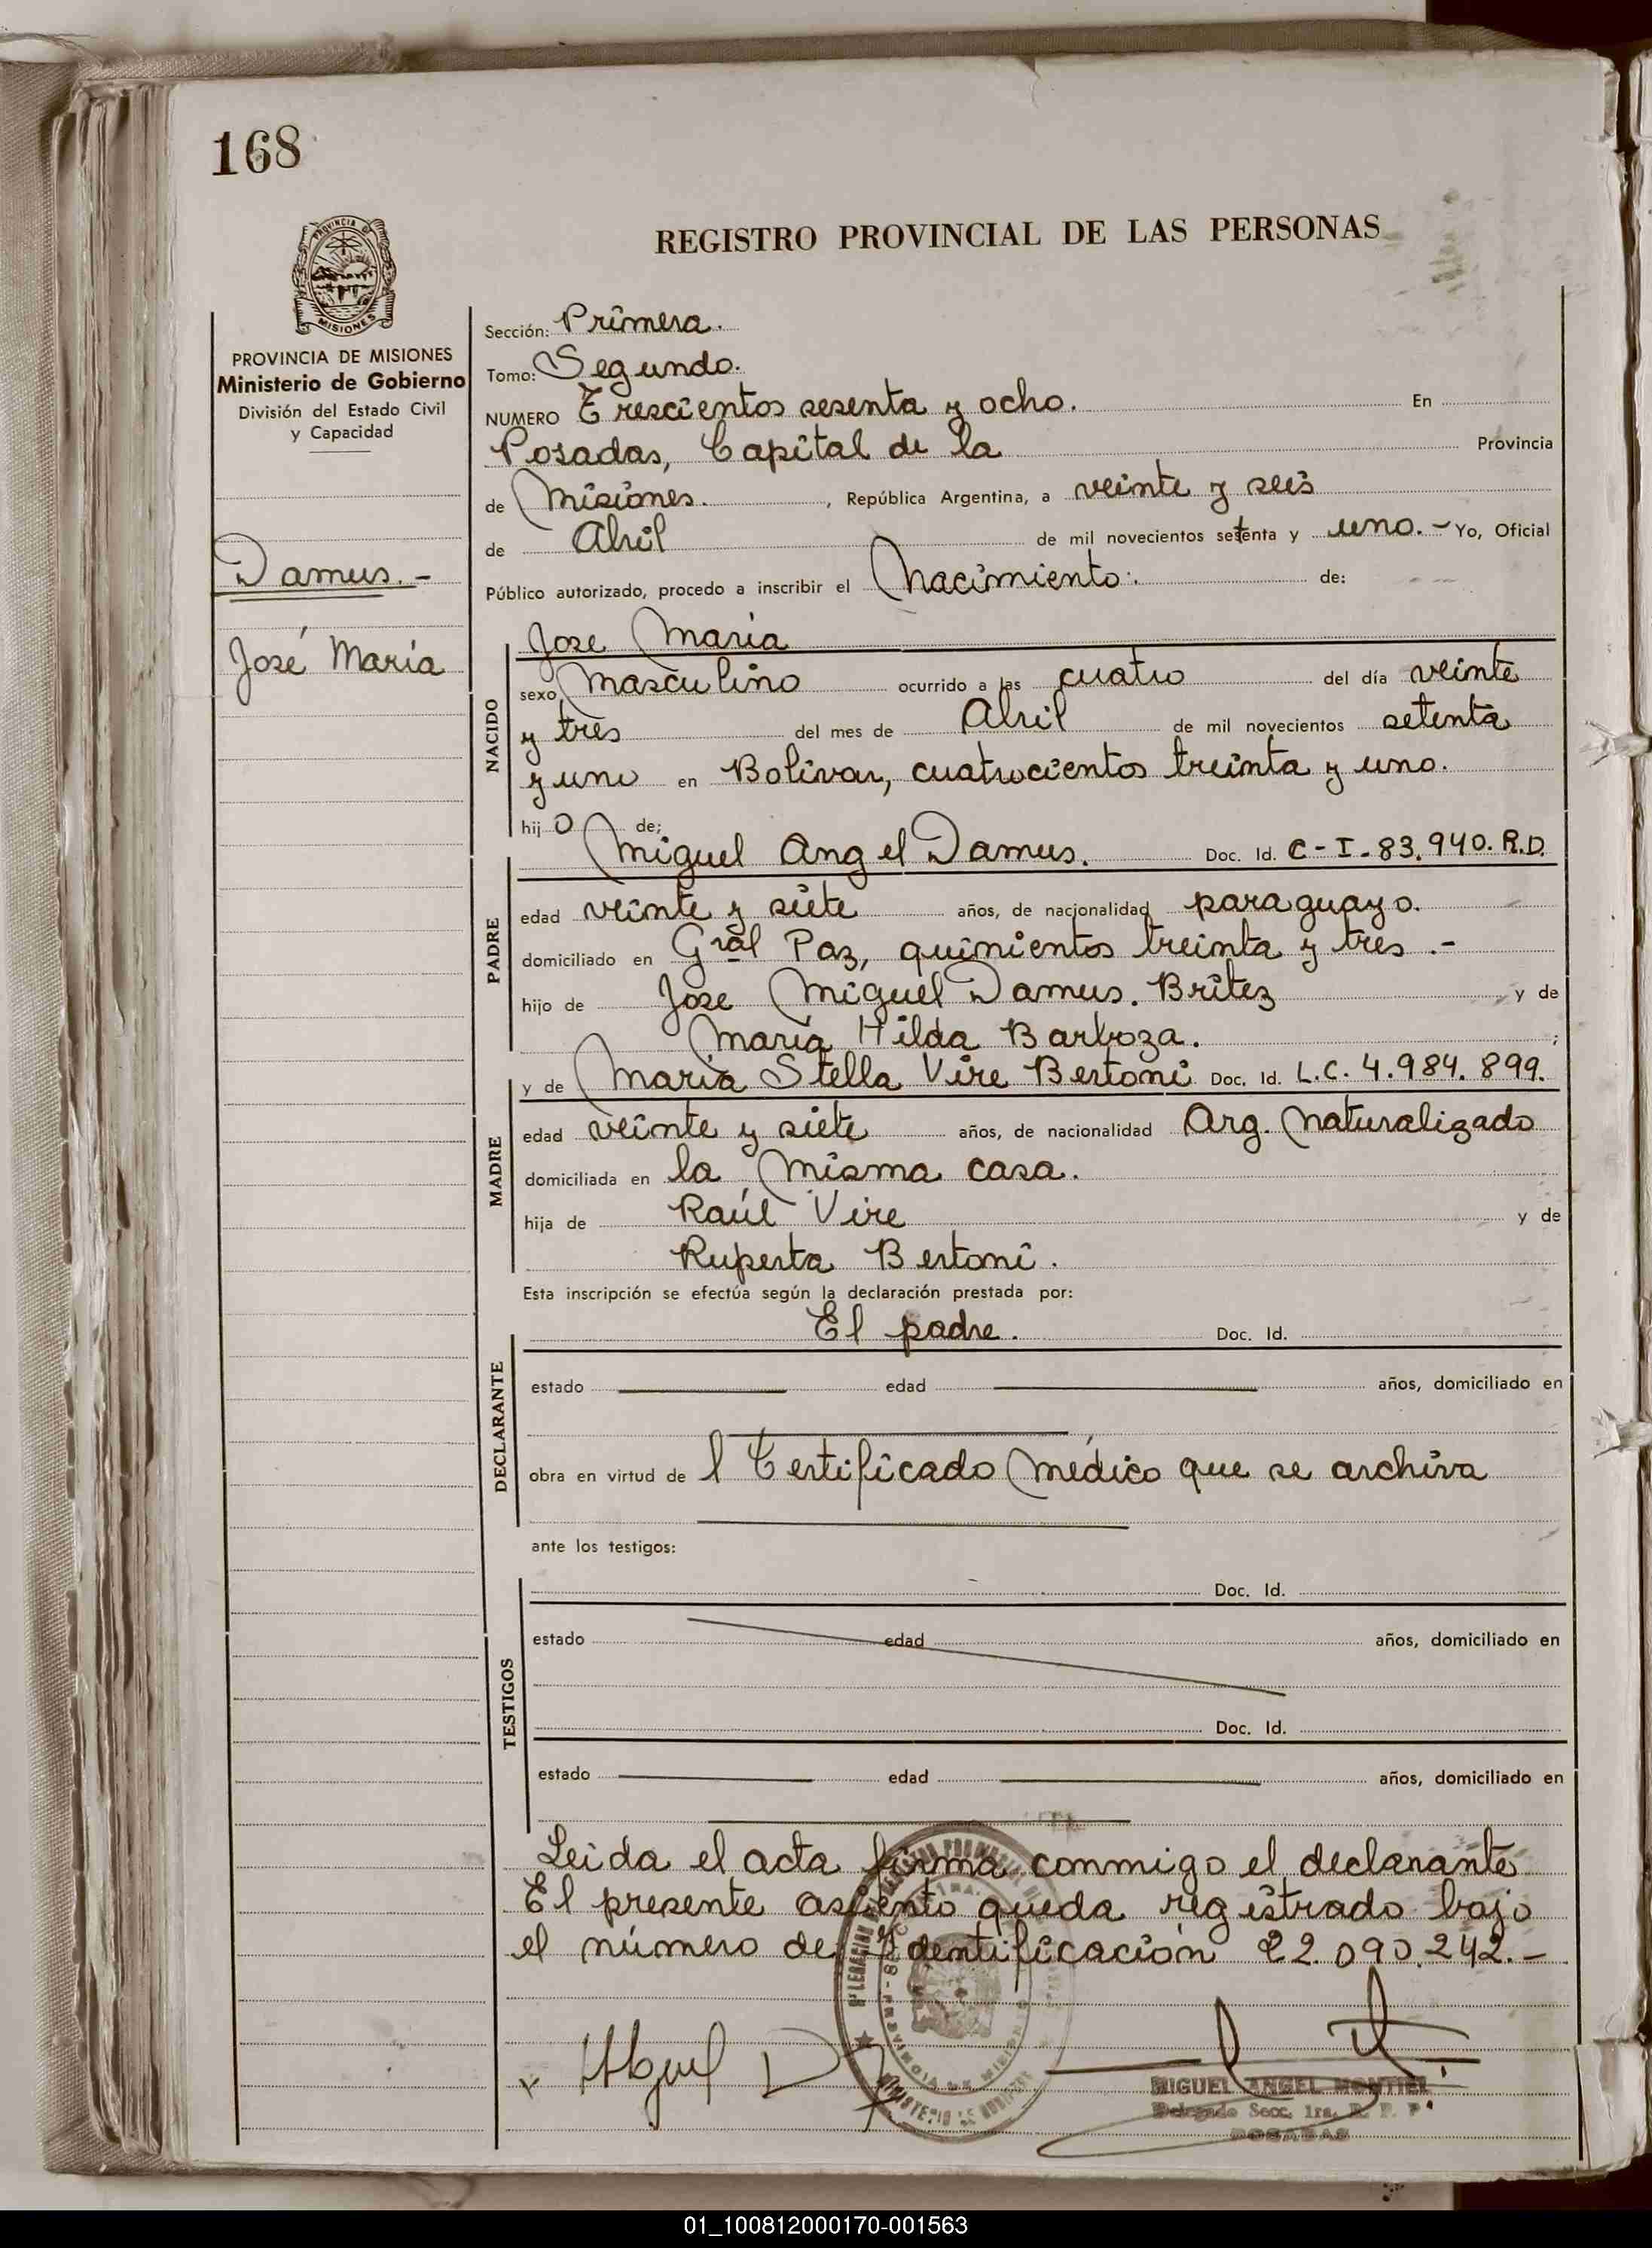 168
PROVINCIA DE
MISIONES
REGISTRO PROVINCIAL DE LAS PERSONAS
PROVINCIA DE MISIONES
Ministerio de Gobierno
División del Estado Civil
y Capacidad
Damus.-
José María
Sección: Primera.
Tomo: Segundo.
NUMERO Trescientos sesenta y ocho. En
Posadas, Capital de la Provincia
de Misiones. , República Argentina, a veinte y seis
de Abril de mil novecientos setenta y uno.- Yo, Oficial
Público autorizado, procedo a inscribir el Nacimiento: de:
NACIDO
Jose María
sexo Masculino ocurrido a las cuatro del día veinte
y tres del mes de Abril de mil novecientos setenta
y uno en Bolivar, cuatrocientos treinta y uno.
hij o de;
PADRE
Miguel Angel Damus. Doc. Id. C-I-83.940. R.D.
edad veinte y siete años, de nacionalidad paraguayo.
domiciliado en Gral Paz, quinientos treinta y tres.-
hijo de Jose Miguel Damus. Britez y de
María Hilda Barboza. ;
MADRE
y de María Stella Vire Bertoni Doc. Id. L.C. 4.984.899.
edad veinte y siete años, de nacionalidad Arg. Naturalizado
domiciliada en la misma casa.
hija de Raúl Vire y de
Ruperta Bertoni.
Esta inscripción se efectúa según la declaración prestada por:
DECLARANTE
El padre. Doc. Id.
estado edad años, domiciliado en
obra en virtud de l Certificado médico que se archiva
ante los testigos:
TESTIGOS
Doc. Id.
estado edad años, domiciliado en
Doc. Id.
estado edad años, domiciliado en
Leida el acta firma conmigo el declarante
El presente asiento queda registrado bajo
el número de Identificación 22.090.242.-
MIGUEL ANGEL MONTIEL
Delegado Secc. 1ra. R. P. P.
POSADAS
01_100812000170-001563